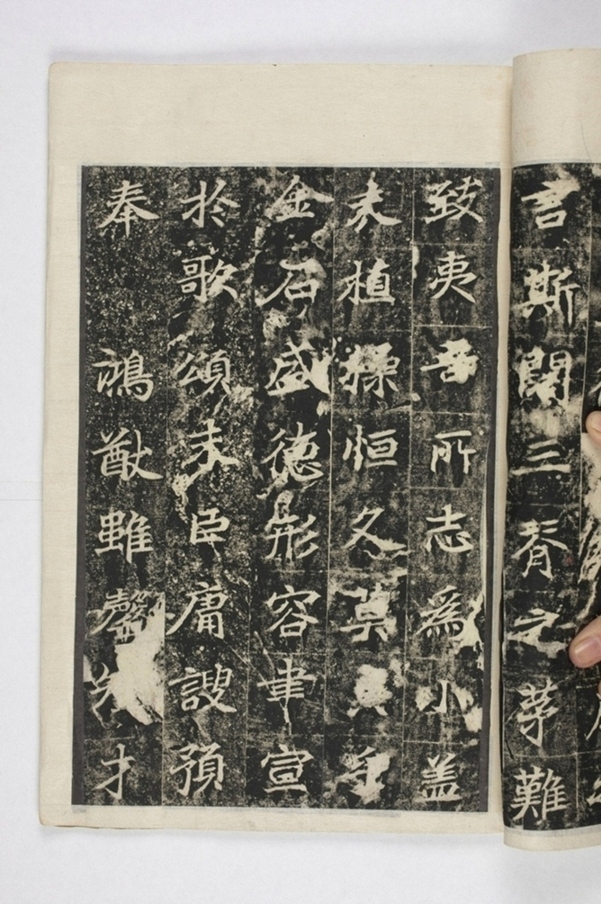 言斯闕三脊之茅難
致夷吾所志為小盖
夫植操恒久莫乎
金石盛徳形容聿宣
於歌頌末臣庸謏預
奉鴻猷雖罄才